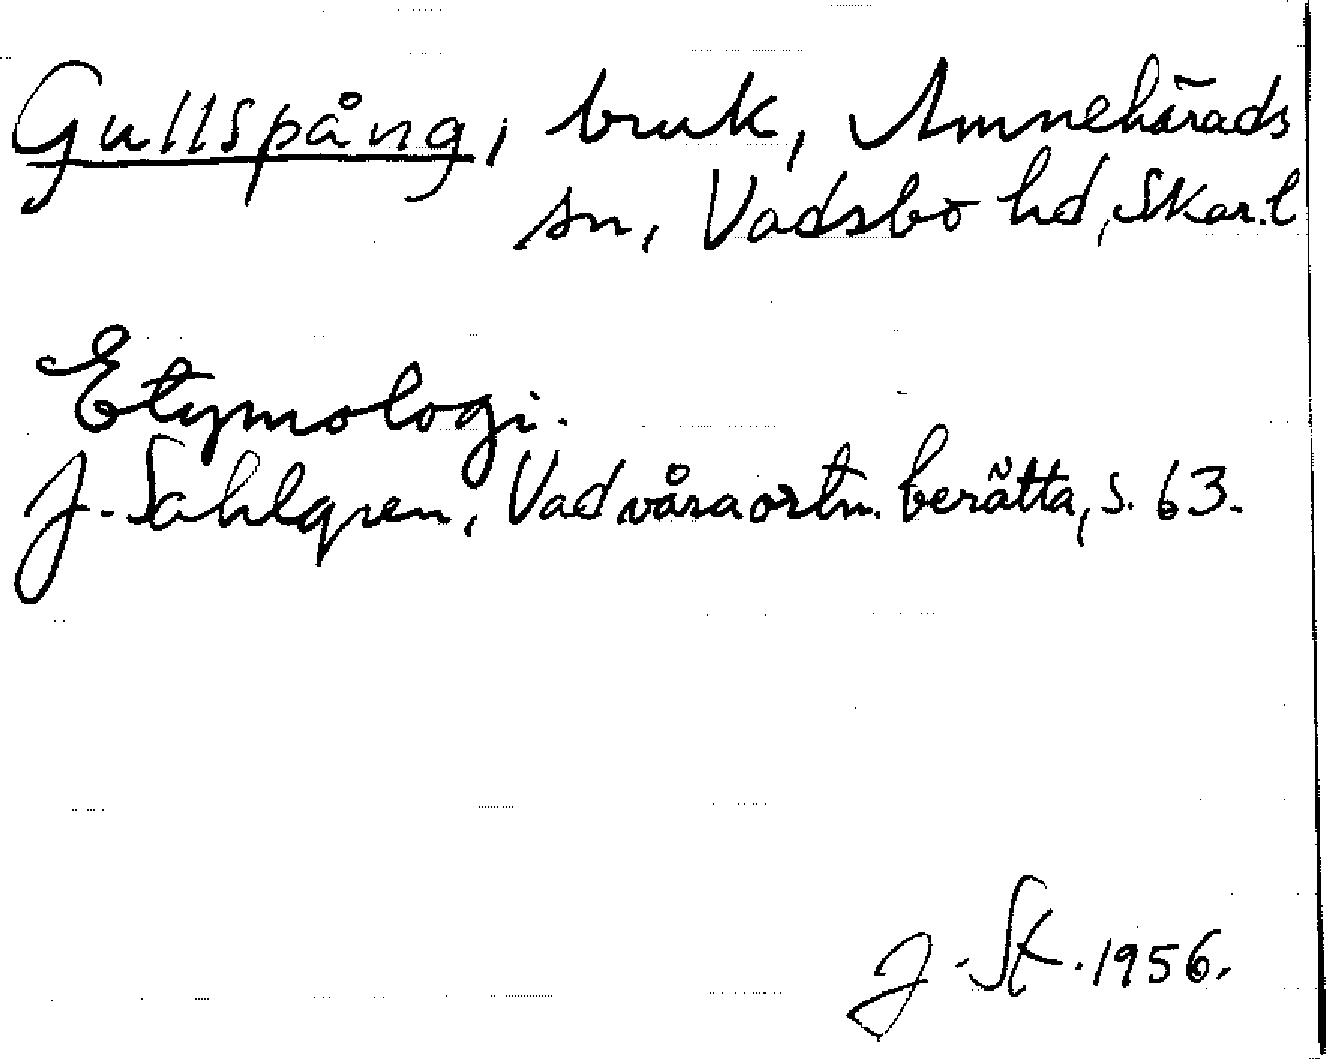 Gullspång, bruk, Amnehärads
sn, Vadsbo hd, Skar.l
Etymologi.
J. Sahlgren, Vad våra ortn. berätta, s. 63.
J. Sk. 1956.